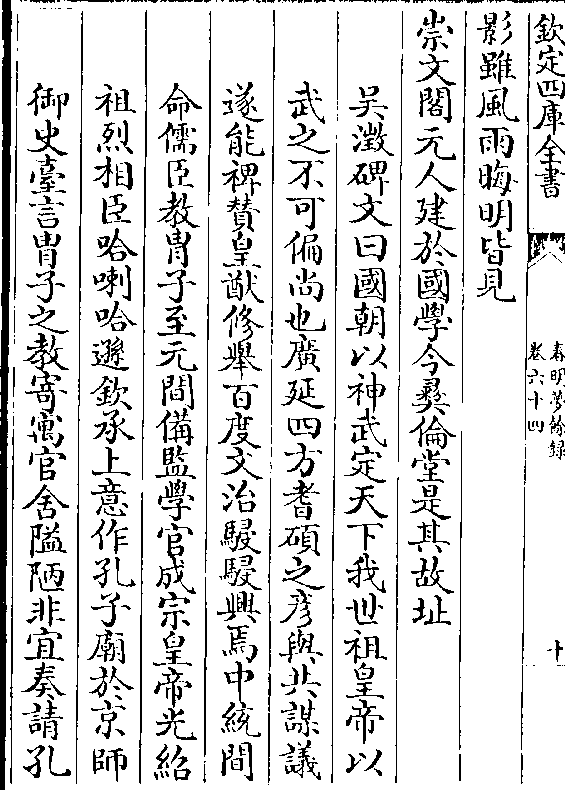 欽定四庫全書
春明夢餘録
卷六十四
十
影雖風雨晦明皆見
崇文閣元人建於國學今彝倫堂是其故址
吴澂碑文曰國朝以神武定天下我世祖皇帝以
武之不可偏尚也廣延四方耆碩之彦與共謀議
遂能裨賛皇猷修舉百度文治駸駸興焉中統間
命儒臣教胄子至元間備監學官成宗皇帝光紹
祖烈相臣哈喇哈遜欽承上意作孔子廟於京師
御史臺言胄子之教寄寓官舍隘陋非宜奏請孔